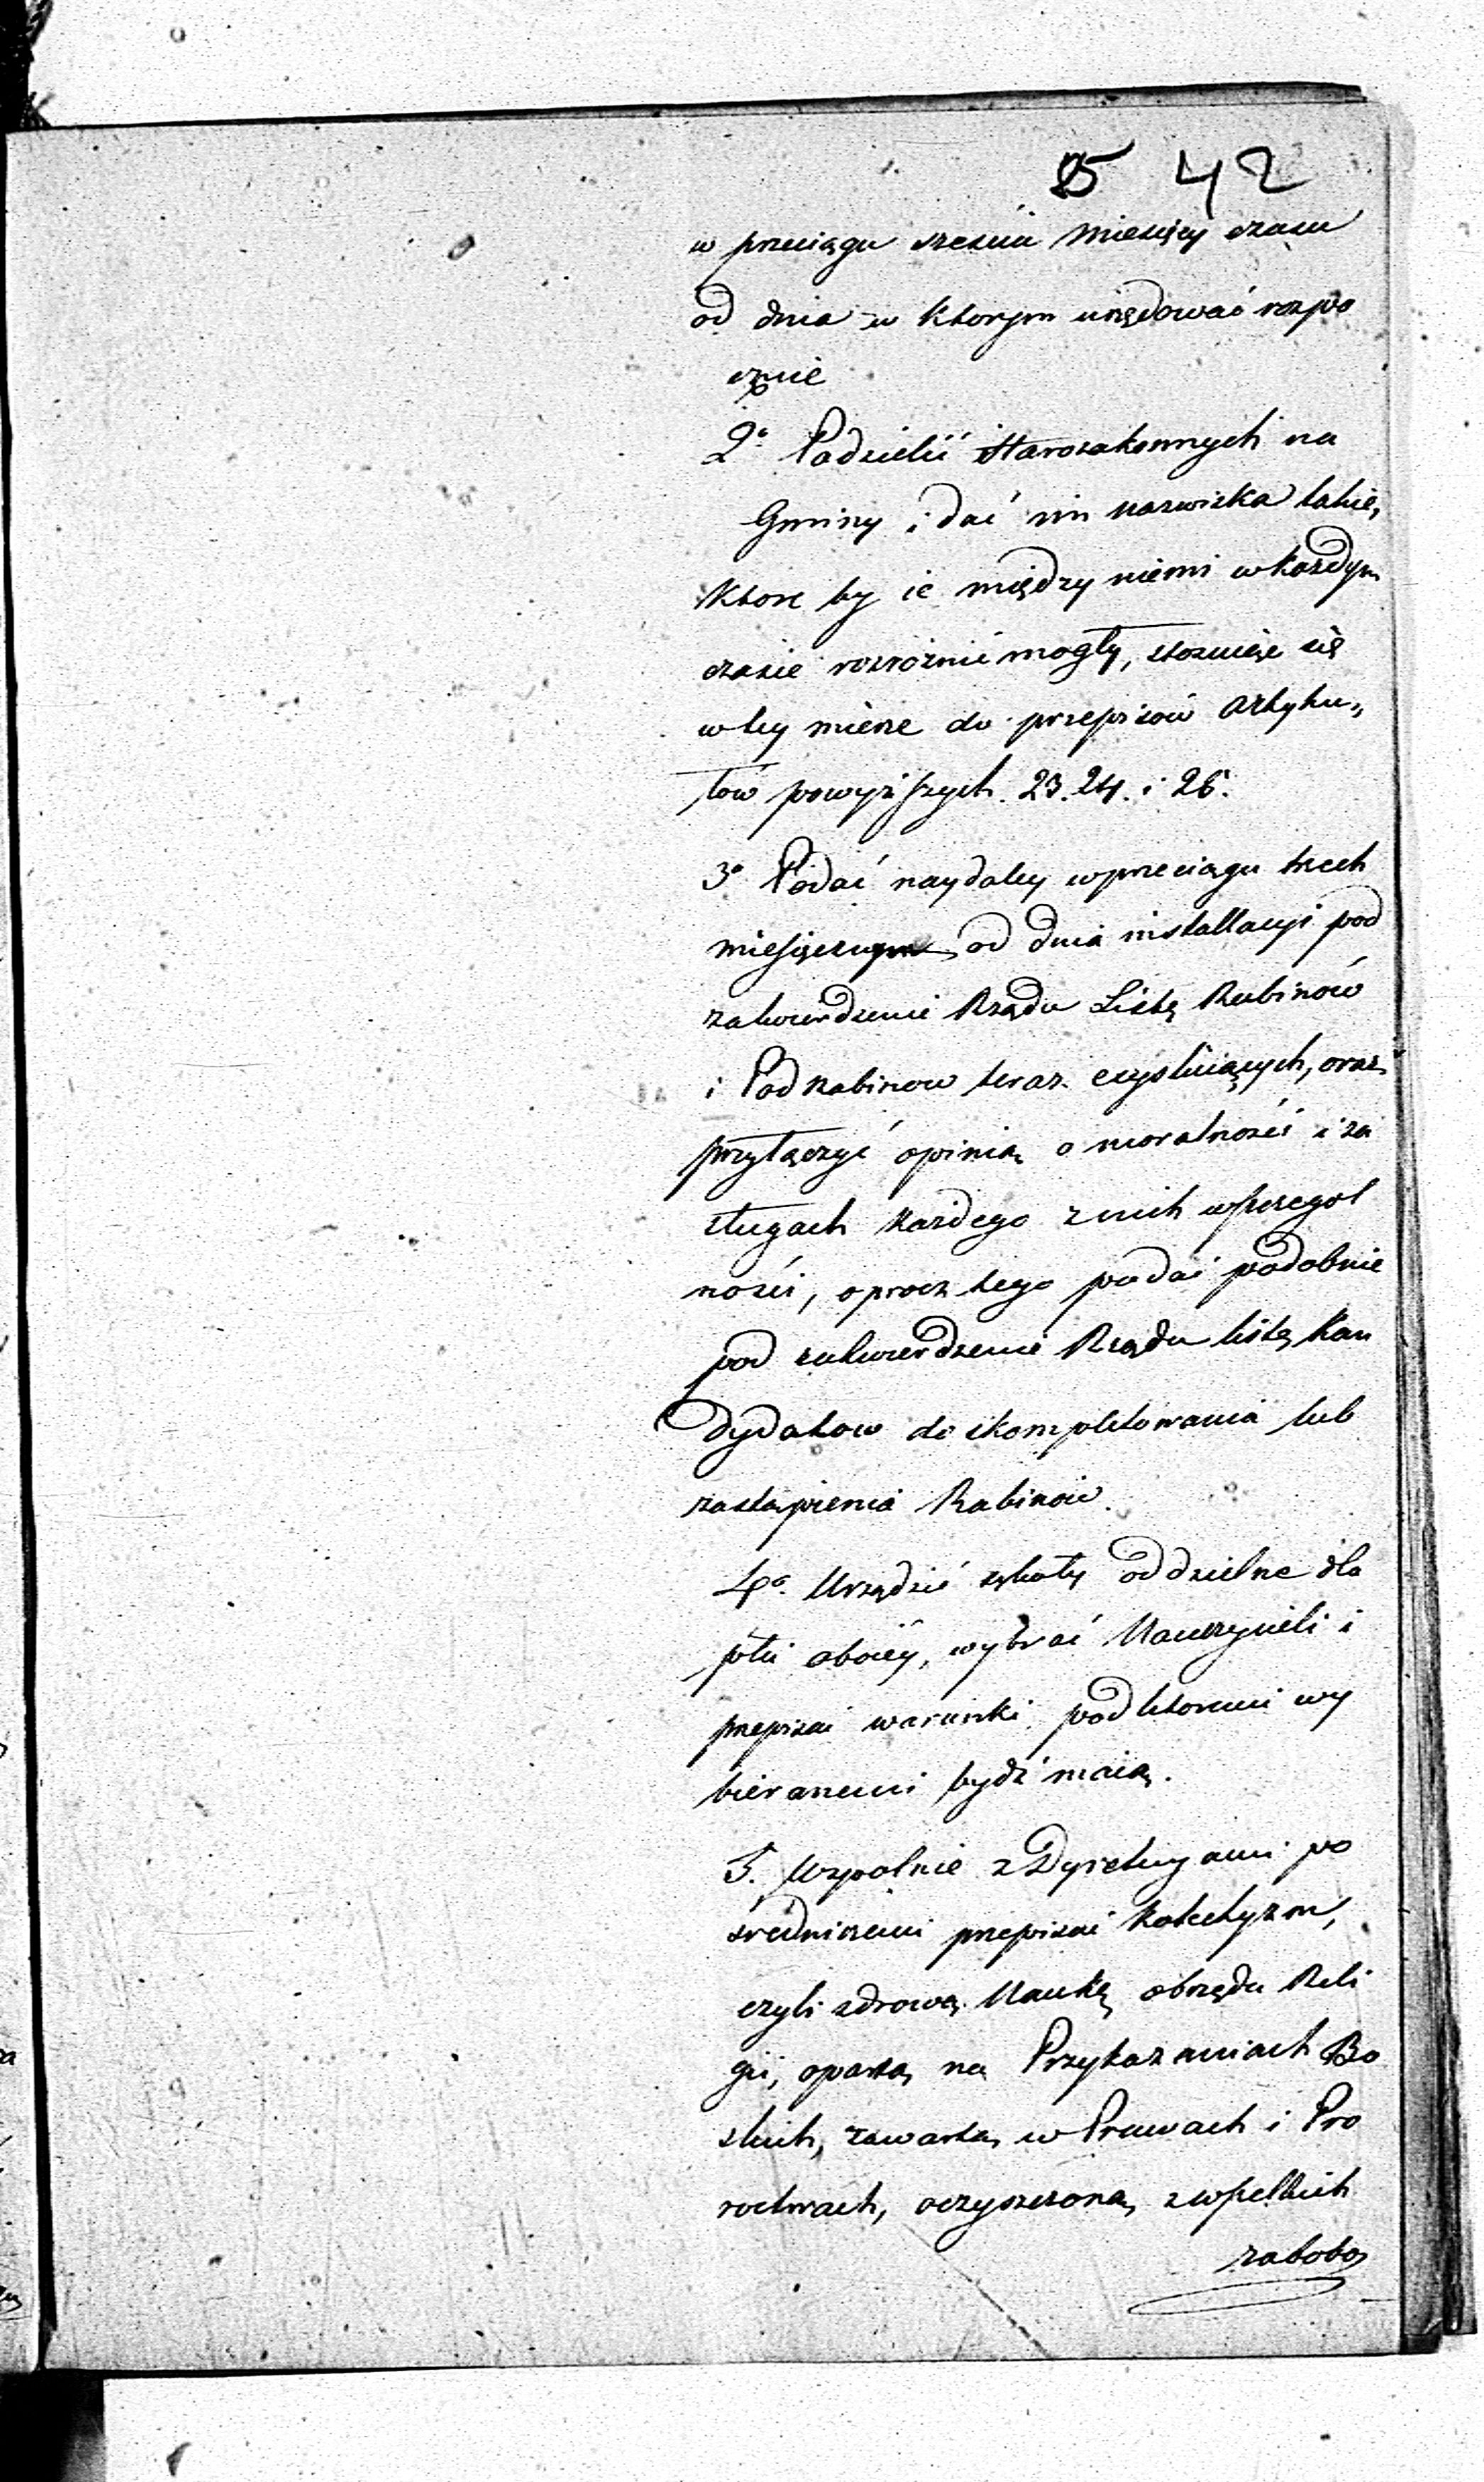 25 42
w przeciągu sześciu Miesięcy czasu
od dnia w ktorym urzędować rozpo
cznie
2° Podzielić Starozakonnych na
Gminy i dać im nazwiska takie,
ktore by ie między niemi w każdym
czasie rozrożnić mogły, stosuiąc się
w tey mierze do przepisow Artyku„
łów powyższych. 23. 24. i 26.
3° Podać naydaley w przeciągu trzech
miesięcznym od dnia installacyi pod
zatwierdzenie Rządu Listę Rabinów
i Podrabinow teraz exystuiących, oraz
przyłączyć opinią o moralności i za
sługach każdego z nich w szczegol
ności, oprocz tego podać podobnie
pod zatwierdzenie Rządu listę Kan
dydatow do skompletowania lub
zastąpienia Rabinow.
4° Urządzić szkoły oddzielne dla
płci oboiéy, wybrać Nauczycieli i
przepisać warunki pod ktoremi wy
bieranemi bydź maią.
5. Wspolnie z Dyrekcyami po
średniczemi przepisać Katechyzm,
czyli zdrową Naukę obrzędu Reli
gii, opartą na Przykazaniach Bo
skich, zawartą w Prawach i Pro
roctwach, oczyszczoną z wszelkich
zabobo